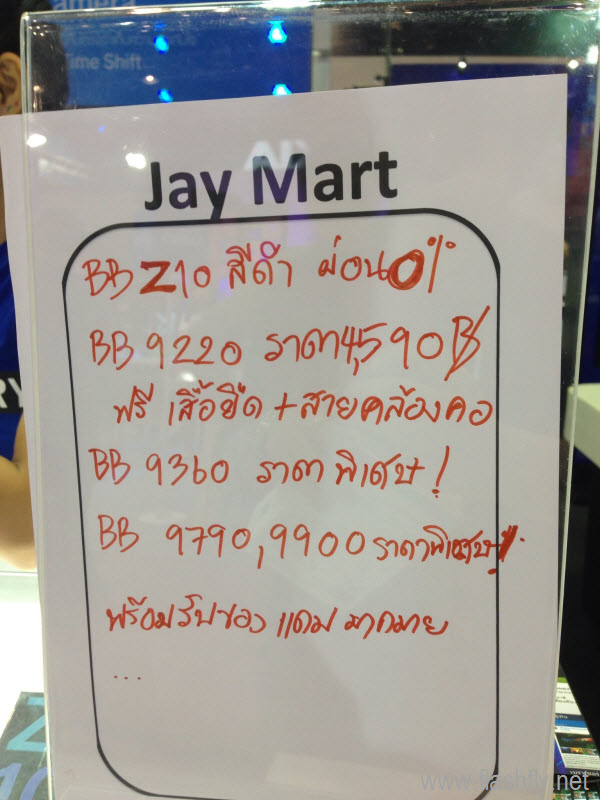 Time Shift
Jay Mart
BB Z10 สีดำ ผ่อน 0%
BB 9220 ราคา 4,590 ฿
ฟรี เสื้อยืด + สายคล้องคอ
BB 9360 ราคา พิเศษ !
BB 9790, 9900 ราคาพิเศษ !
พร้อมรับของ แถม มากมาย
...
Z
10
www.flashfly.net